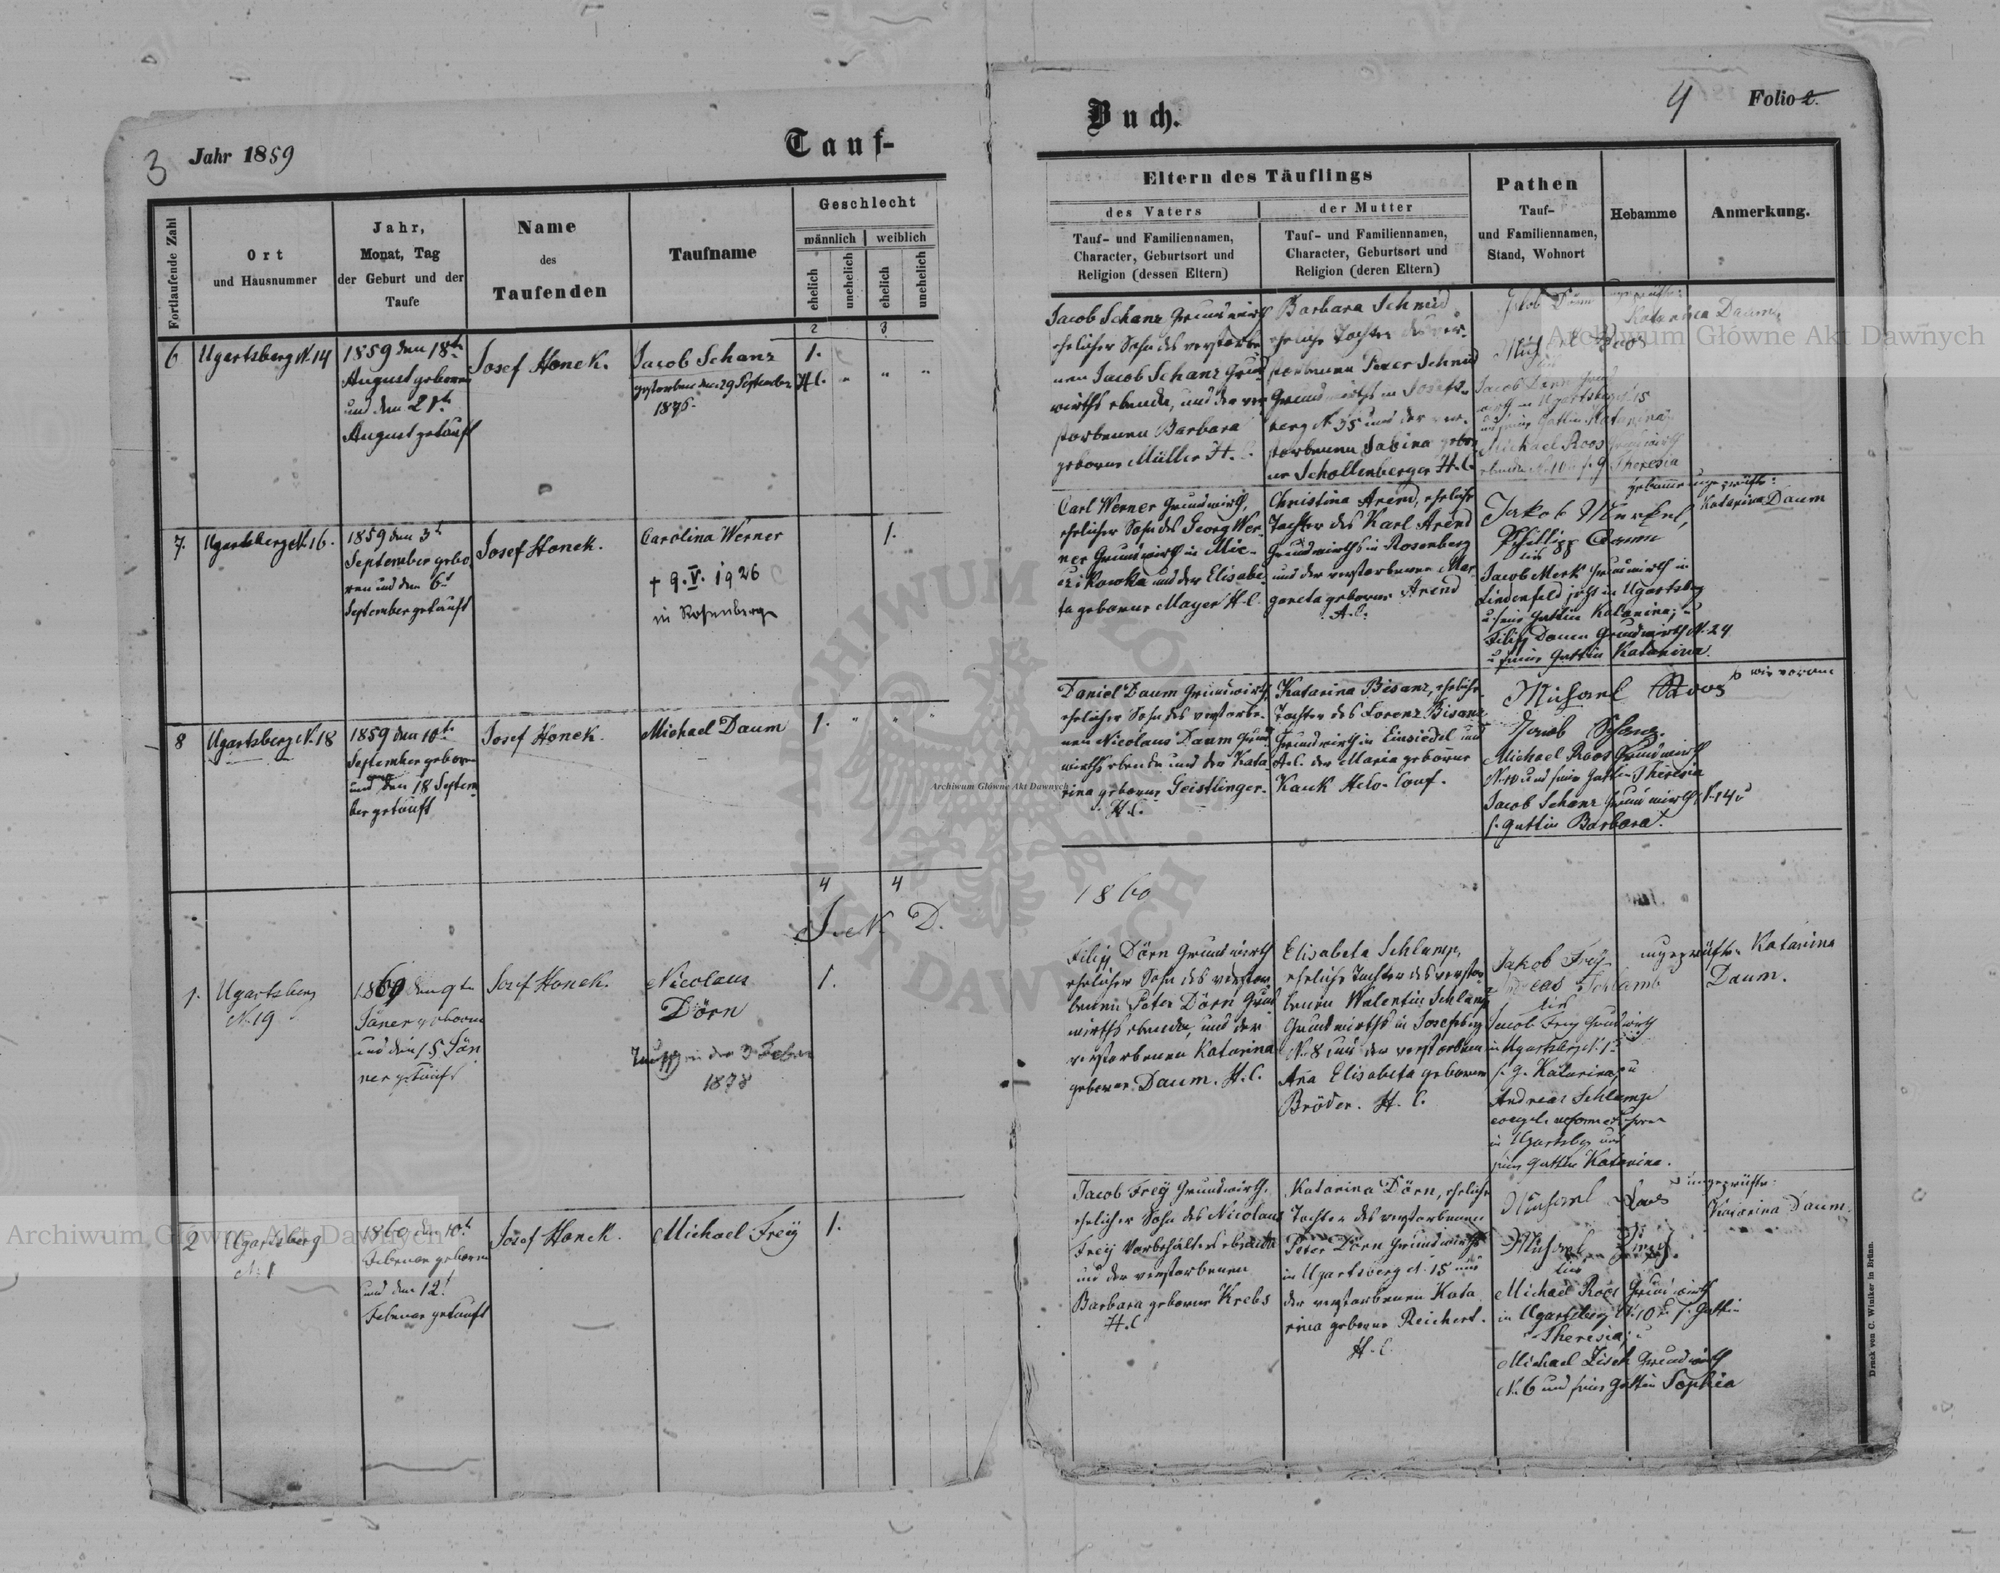 3
Jahr 1859
Tauf-
Fortlaufende Zahl
Ort
und Hausnummer
Jahr,
Monat, Tag
der Geburt und der
Taufe
Name
des
Taufenden
Taufname
Geschlecht
männlich
weiblich
ehelich
unehelich
ehelich
unehelich
2
3
6
Ugartsberg N. 14
1859 den 18t
August geboren
und den 21t
August getauft
Josef Honek.
Jacob Schanz
gestorben den 29 September
1876.
1.
H.C.
7.
Ugartsberg N. 16.
1859 den 3t
September gebo
ren und den 6t
September getauft
Josef Honek.
Carolina Werner
+ 9. V. 1926
in Rosenberg
1.
8
Ugartsberg N. 18
1859 den 10t
September geboren
und den 18 Septem
ber getauft
Josef Honek.
Michael Daum
1.
4
4
J. N. D.
1.
Ugartsberg
N. 19
1860 den 9t
Jäner geboren
und den 15 Jän
ner getauft
Josef Honek.
Nicolaus
Dörn
den 3. Feber
1878
1.
2
Ugartsberg
N. 1
1860 den 10t
Februar geboren
und den 12t
Februar getauft
Josef Honek.
Michael Freÿ
1.
Buch.
4
Folio 2.
Eltern des Täuflings
des Vaters
der Mutter
Tauf- und Familiennamen,
Character, Geburtsort und
Religion (dessen Eltern)
Tauf- und Familiennamen,
Character, Geburtsort und
Religion (deren Eltern)
Pathen
Tauf-
und Familiennamen,
Stand, Wohnort
Hebamme
Anmerkung.
Jacob Schanz Grundwirth
ehelicher Sohn des verstorbe
nen Jacob Schanz Grund
wirths ebenda, und der ver
storbenen Barbara
geborne Müller H.C.
Barbara Schmid
eheliche Tochter des ver
storbenen Peter Schmid
Grundwirths in Josefs
berg N 35 und der ver
storbenen Sabina gebor
ne Schollenberger H.C.
Jacob Dörn Grund
wirth in Ugartsberg N. 15
und seine Gattin Katarina
Michael Roos Grundwirth
ebenda N. 10 u. s. g. Theresia
ungeprüfte:
Katarina Daum
Carl Werner Grundwirth,
ehelicher Sohn des Georg Wer
ner Grundwirth in Mic
und der Elisabe
ta geborne Mayer H.C.
Christina Arend, eheliche
Tochter des Karl Arend
Grundwirths in Rosenberg
und der verstorbenen Mar
gareta geborne Arend
A.C.
Jakob Merk,
Phillipp Daum
Jacob Merk Grundwirth in
Lindenfeld jetzt in Ugartsberg
u. seine Gattin Katarina; u
Filip Daum Grundwirth N. 24
u seine Gattin Katarina.
Hebamme ungeprüfte:
Katarina Daum
Daniel Daum Grundwirth,
ehelicher Sohn des verstorbe
nen Nicolaus Daum Grund
wirths ebenda und der Kata
rina geborne Geistlinger.
H.C.
Katarina Bisanz, eheliche
Tochter des Lorenz Bisanz
Grundwirth in Einsiedel und
A.C. der Maria geborne
Kauk Helv. Conf.
Michael Roos
Jacob Schanz.
Michael Roos Grundwirth
N. 10 und seine Gattin Theresia
Jacob Schanz Grundwirth N. 14 u
s. Gattin Barbara.
wie voran
1860
Filip Dörn Grundwirth
ehelicher Sohn des verstor
benen Peter Dörn Grund
wirths ebenda, und der
verstorbenen Katarina
geborne Daum. H.C.
Elisabeta Schlamp,
eheliche Tochter des verstor
benen Walentin Schlamp
Grundwirths in Josefsberg
N. 8 und der verstorbenen
Ana Elisabeta geborne
Bröder. H. C.
Jakob Freÿ
Andreas Schlamb
Jacob Freÿ Grundwirth
in Ugartsberg N. 1
s. g. Katarina, u
Andreas Schlamp
in Ugartsberg und
seine Gattin Katarina.
ungeprüfte Katarina
Daum.
Jacob Freÿ Grundwirth,
ehelicher Sohn des Nicolaus
Freÿ Vorbehälters ebenda
und der verstorbenen
Barbara geborne Krebs
H.C
Katarina Dörn, eheliche
Tochter des verstorbenen
Peter Dörn Grundwirths
in Ugartsberg N. 15 und
der verstorbenen Kata
rina geborne Reichert.
H.C
Michael Roos
Michael
Michael Roos Grundwirth
in Ugartsberg N. 10 u. s. Gattin
Theresia; u
Michael Zisek Grundwirth
N. 6 und seine Gattin Sophia
ungeprüfte:
Katarina Daum.
Druck von C. Winiker in Brünn.
Archiwum Główne Akt Dawnych
Archiwum Główne Akt Dawnych
Archiwum Główne Akt Dawnych